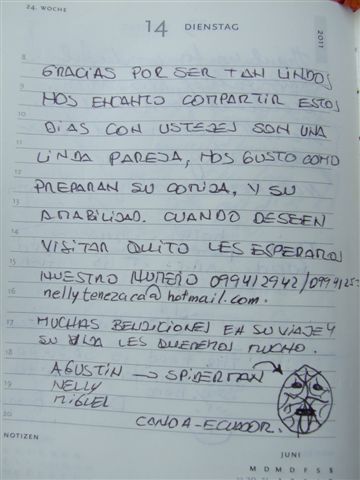 24. WOCHE
14 DIENSTAG
2011
8
GRACIAS POR SER TAN LINDOS
9
NOS ENCANTO COMPARTIR ESTOS
10
DIAS CON USTEDES SON UNA
11
LINDA PAREJA, NOS GUSTO COMO
12
PREPARAN SU COMIDA, Y SU
13
AMABILIDAD. CUANDO DESEEN
14
VISITAR QUITO LES ESPERAMOS
15
NUESTRO NUMERO 099412942/
16
nellytenezaca@hotmail.com.
17
MUCHAS BENDICIONES EN SU VIAJE Y
SU VIDA LES QUEREMOS MUCHO.
18
AGUSTIN → SPIDERMAN
19
NELLY
MIGUEL
20
CANOA-ECUADOR.
NOTIZEN
JUNI
M D M D F S S